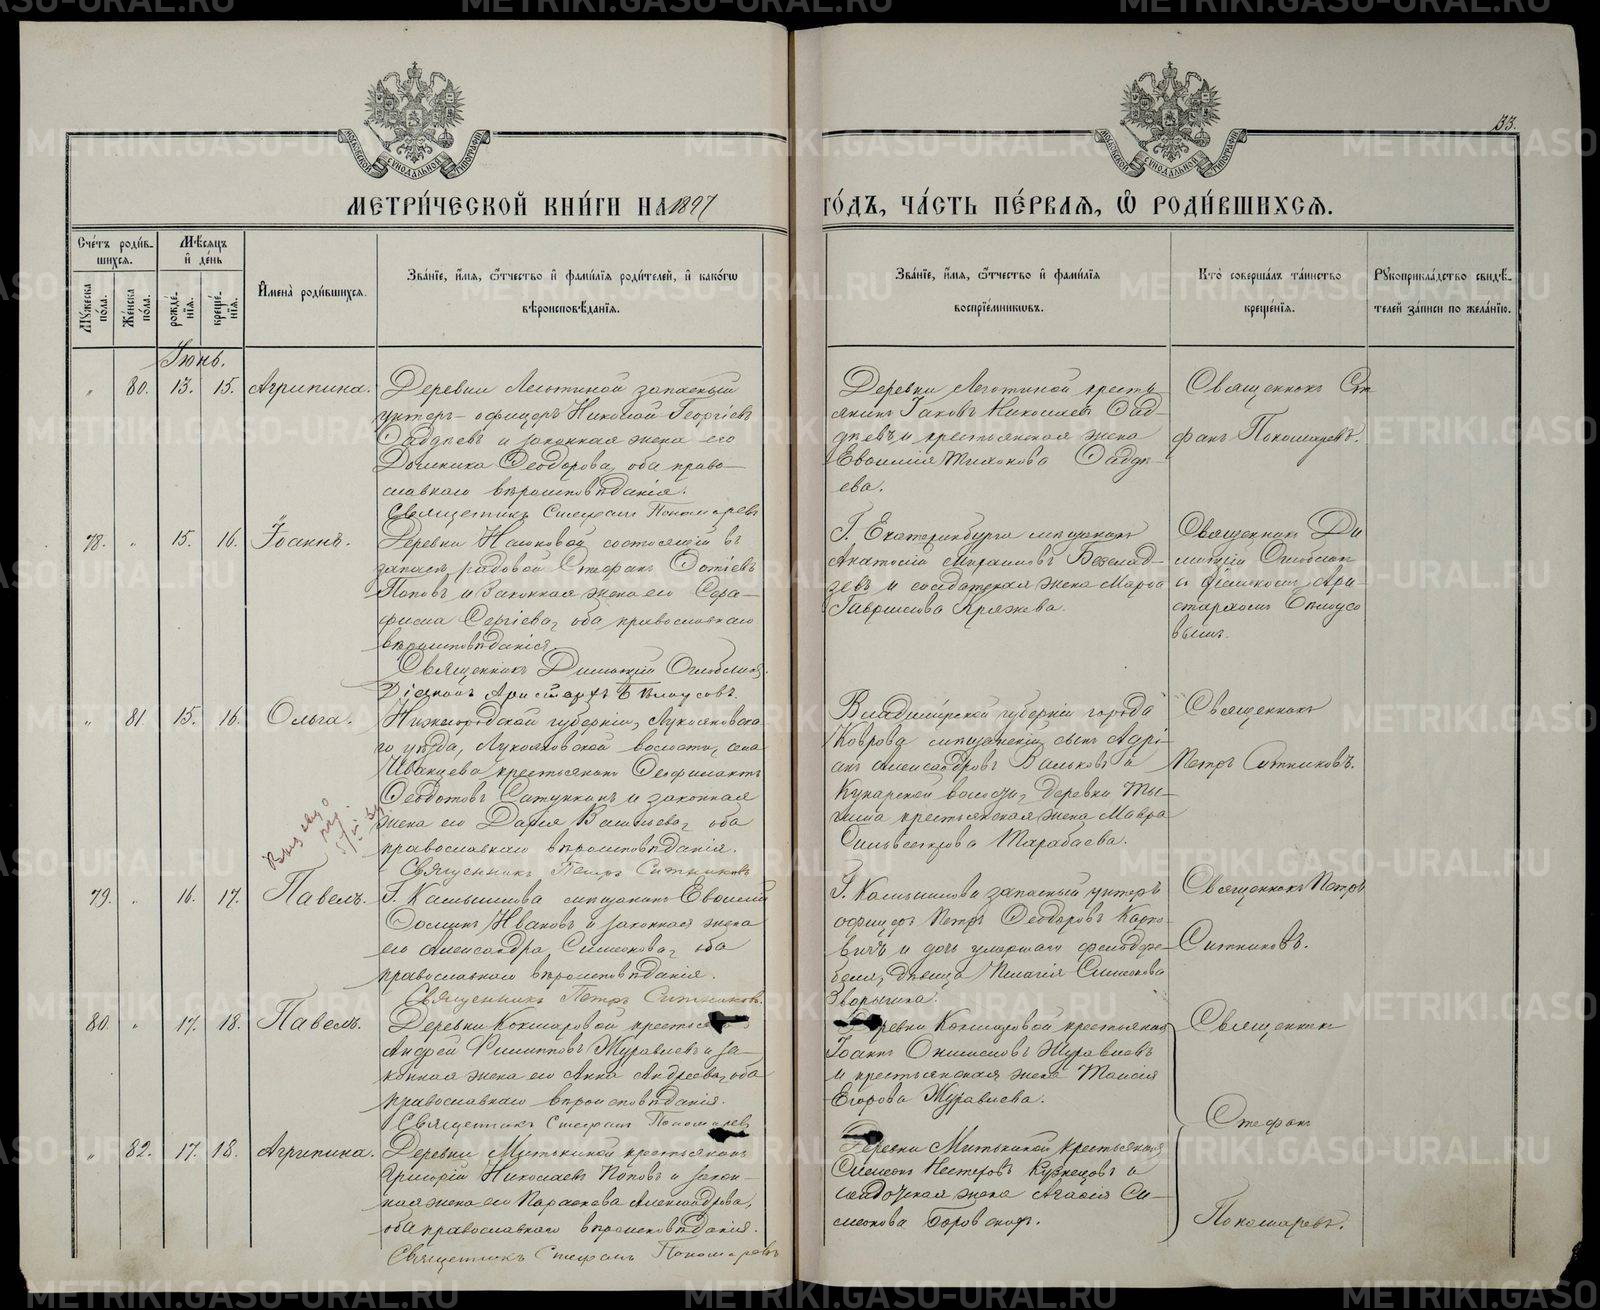 33.
МЕТРИ́ЧЕСКОЙ КНИ́ГИ НА 1897
ГО́ДЪ, ЧА́СТЬ ПЕ́РВАЯ, Ѡ РОДИ́ВШИХСЯ.
Сче́тъ роди́в-
шихся.
Мѣ́сяцъ
и҆ де́нь
Му́жеска по́ла.
Же́нска по́ла.
рожде́-
нїя.
креще́-
нїя.
И҆мена̀ роди́вшихся.
Зва́нїе, и҆́мя, ѻ҆́тчество и҆ фами́лїя роди́телей, и҆ како́гѡ
вѣроисповѣ́данїя.
Зва́нїе, и҆́мя, ѻ҆́тчество и҆ фами́лїя
воспрїе́мниковъ.
Кто̀ соверша́лъ та́инство
креще́нїя.
Рꙋкоприкла́дство свидѣ́-
телей за́писи по жела́нїю.
Іюнь.
" 80. 13. 15. Агрипина.
Деревни Леготиной запасный
унтеръ-офицеръ Николай Георгіевъ
Фаддѣевъ и законная жена его
Домника Ѳеодорова, оба право-
славнаго вѣроисповѣданія.
Священникъ Стефанъ Пономаревъ
Деревни Леготиной кресть-
янинъ Іаковъ Николаевъ Фад-
дѣевъ и крестьянская жена
Евѳимія Тихонова Фаддѣ-
ева.
Священникъ Сте
фанъ Пономаревъ.
78. " 15. 16. Іоаннъ.
Деревни состоящій въ
запасѣ рядовой Стефанъ Фотіевъ
Поповъ и законная жена его Сера-
фима Сергіева, оба православнаго
вѣроисповѣданія.
Священникъ Димитрій
Діаконъ Аристархъ Бѣлоусовъ.
Г. Екатеринбурга мѣщанинъ
Анатолій
и солдатская жена Марѳа
Гавриилова Пряжева.
Священник Ди
митрій
съ діакономъ Ари-
стархомъ Бѣлоусо
вымъ.
" 81. 15. 16. Ольга.
Нижегородской губерніи, Лукояновска
го уѣзда, Лукояновской волости, села
Иванцева крестьянинъ Ѳеофилактъ
Ѳедотовъ и законная
жена его Дарія Васильева, оба
православнаго вѣроисповѣданія.
Священникъ Петръ Ситниковъ
Владимірской губерніи города
Коврова мѣщанскій сынъ Адрі-
анъ Александровъ Вальковъ и
Кунарской волости, деревни
крестьянская жена Мавра
Сильвестрова Тарабаева.
Священникъ
Петръ Ситниковъ.
79. " 16. 17. Павелъ.
Г. Камышлова мѣщанинъ Евѳимій
Ивановъ и законная жена
его Александра Симеонова, оба
православнаго вѣроисповѣданія.
Священникъ Петръ Ситниковъ.
Г. Камышлова запасный унтеръ
офицеръ Петръ Ѳеодоровъ Карпо-
вичъ и дочь умершаго фельдфе-
беля, дѣвица Пелагія Симеонова
Зворыгина.
Священникъ Петръ
Ситниковъ.
80. " 17. 18. Павелъ.
Деревни Кокшаровой
Андрей Филипповъ Журавлевъ и за-
конная жена его Анна Андреева, оба
православнаго вѣроисповѣданія.
Священникъ Стефанъ Пономаревъ
Деревни Кокшаровой крестьянинъ
Іоаннъ Онисимовъ Журавлевъ
и крестьянская жена Таисія
Егорова Журавлева.
Священникъ
Стефанъ
Пономаревъ.
" 82. 17. 18. Агрипина.
Деревни Митькиной крестьянинъ
Григорій Николаевъ Поповъ и закон-
ная жена его Параскева Александрова,
оба православнаго вѣроисповѣданія.
Священникъ Стефанъ Пономаревъ
Деревни Митькиной крестьянинъ
Симеонъ Несторовъ Кузнецовъ и
солдатская жена Агаѳія Си-
меонова
METRIKI.GASO-URAL.RU